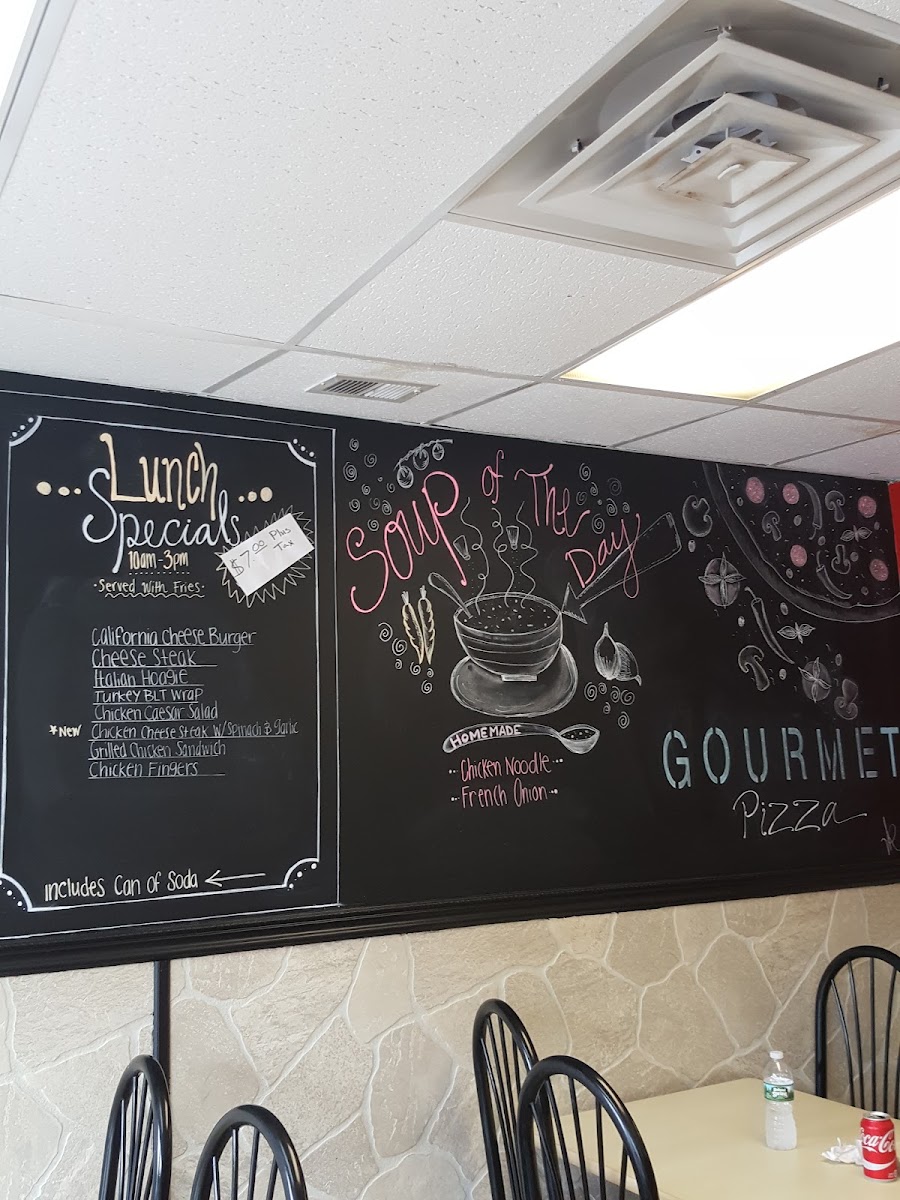 Lunch
Specials
10am-3pm
Served With Fries
$7.00 Plus
Tax
California Cheese Burger
Cheese Steak
Italian Hoagie
Turkey BLT Wrap
Chicken Caesar Salad
*New Chicken Cheese Steak W/Spinach & Garlic
Grilled Chicken Sandwich
Chicken Fingers
includes Can of Soda
Soup of The
Day
HOMEMADE
Chicken Noodle
French Onion
GOURMET
Pizza
Coca-Co